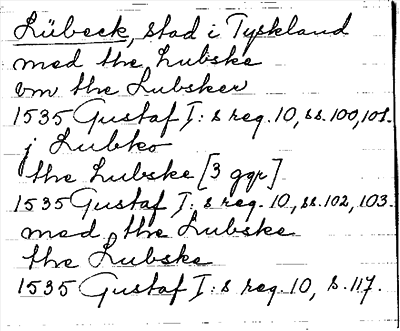 Lübeck, stad i Tyskland
med the Lubske
vm the Lubsker
1535 Gustaf I:s reg. 10, ss. 100, 101.
j Lubko
the Lubske [3 ggr]
1535 Gustaf I:s reg. 10, ss. 102, 103.
med the Lubske
the Lubske
1535 Gustaf I:s reg. 10, s. 117.